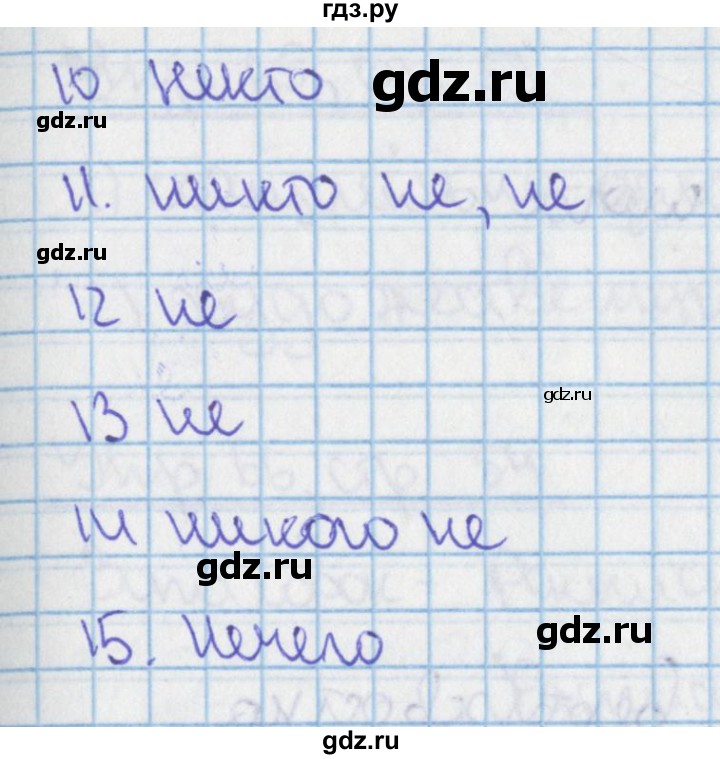 гдз.ру
10 некто
gdz.ru
gdz.ru
11. никто не, не
gdz.ru
12 не
13 не
gdz.ru
14 никого не
gdz.ru
15. Нечего
gdz.ru
gdz.ru